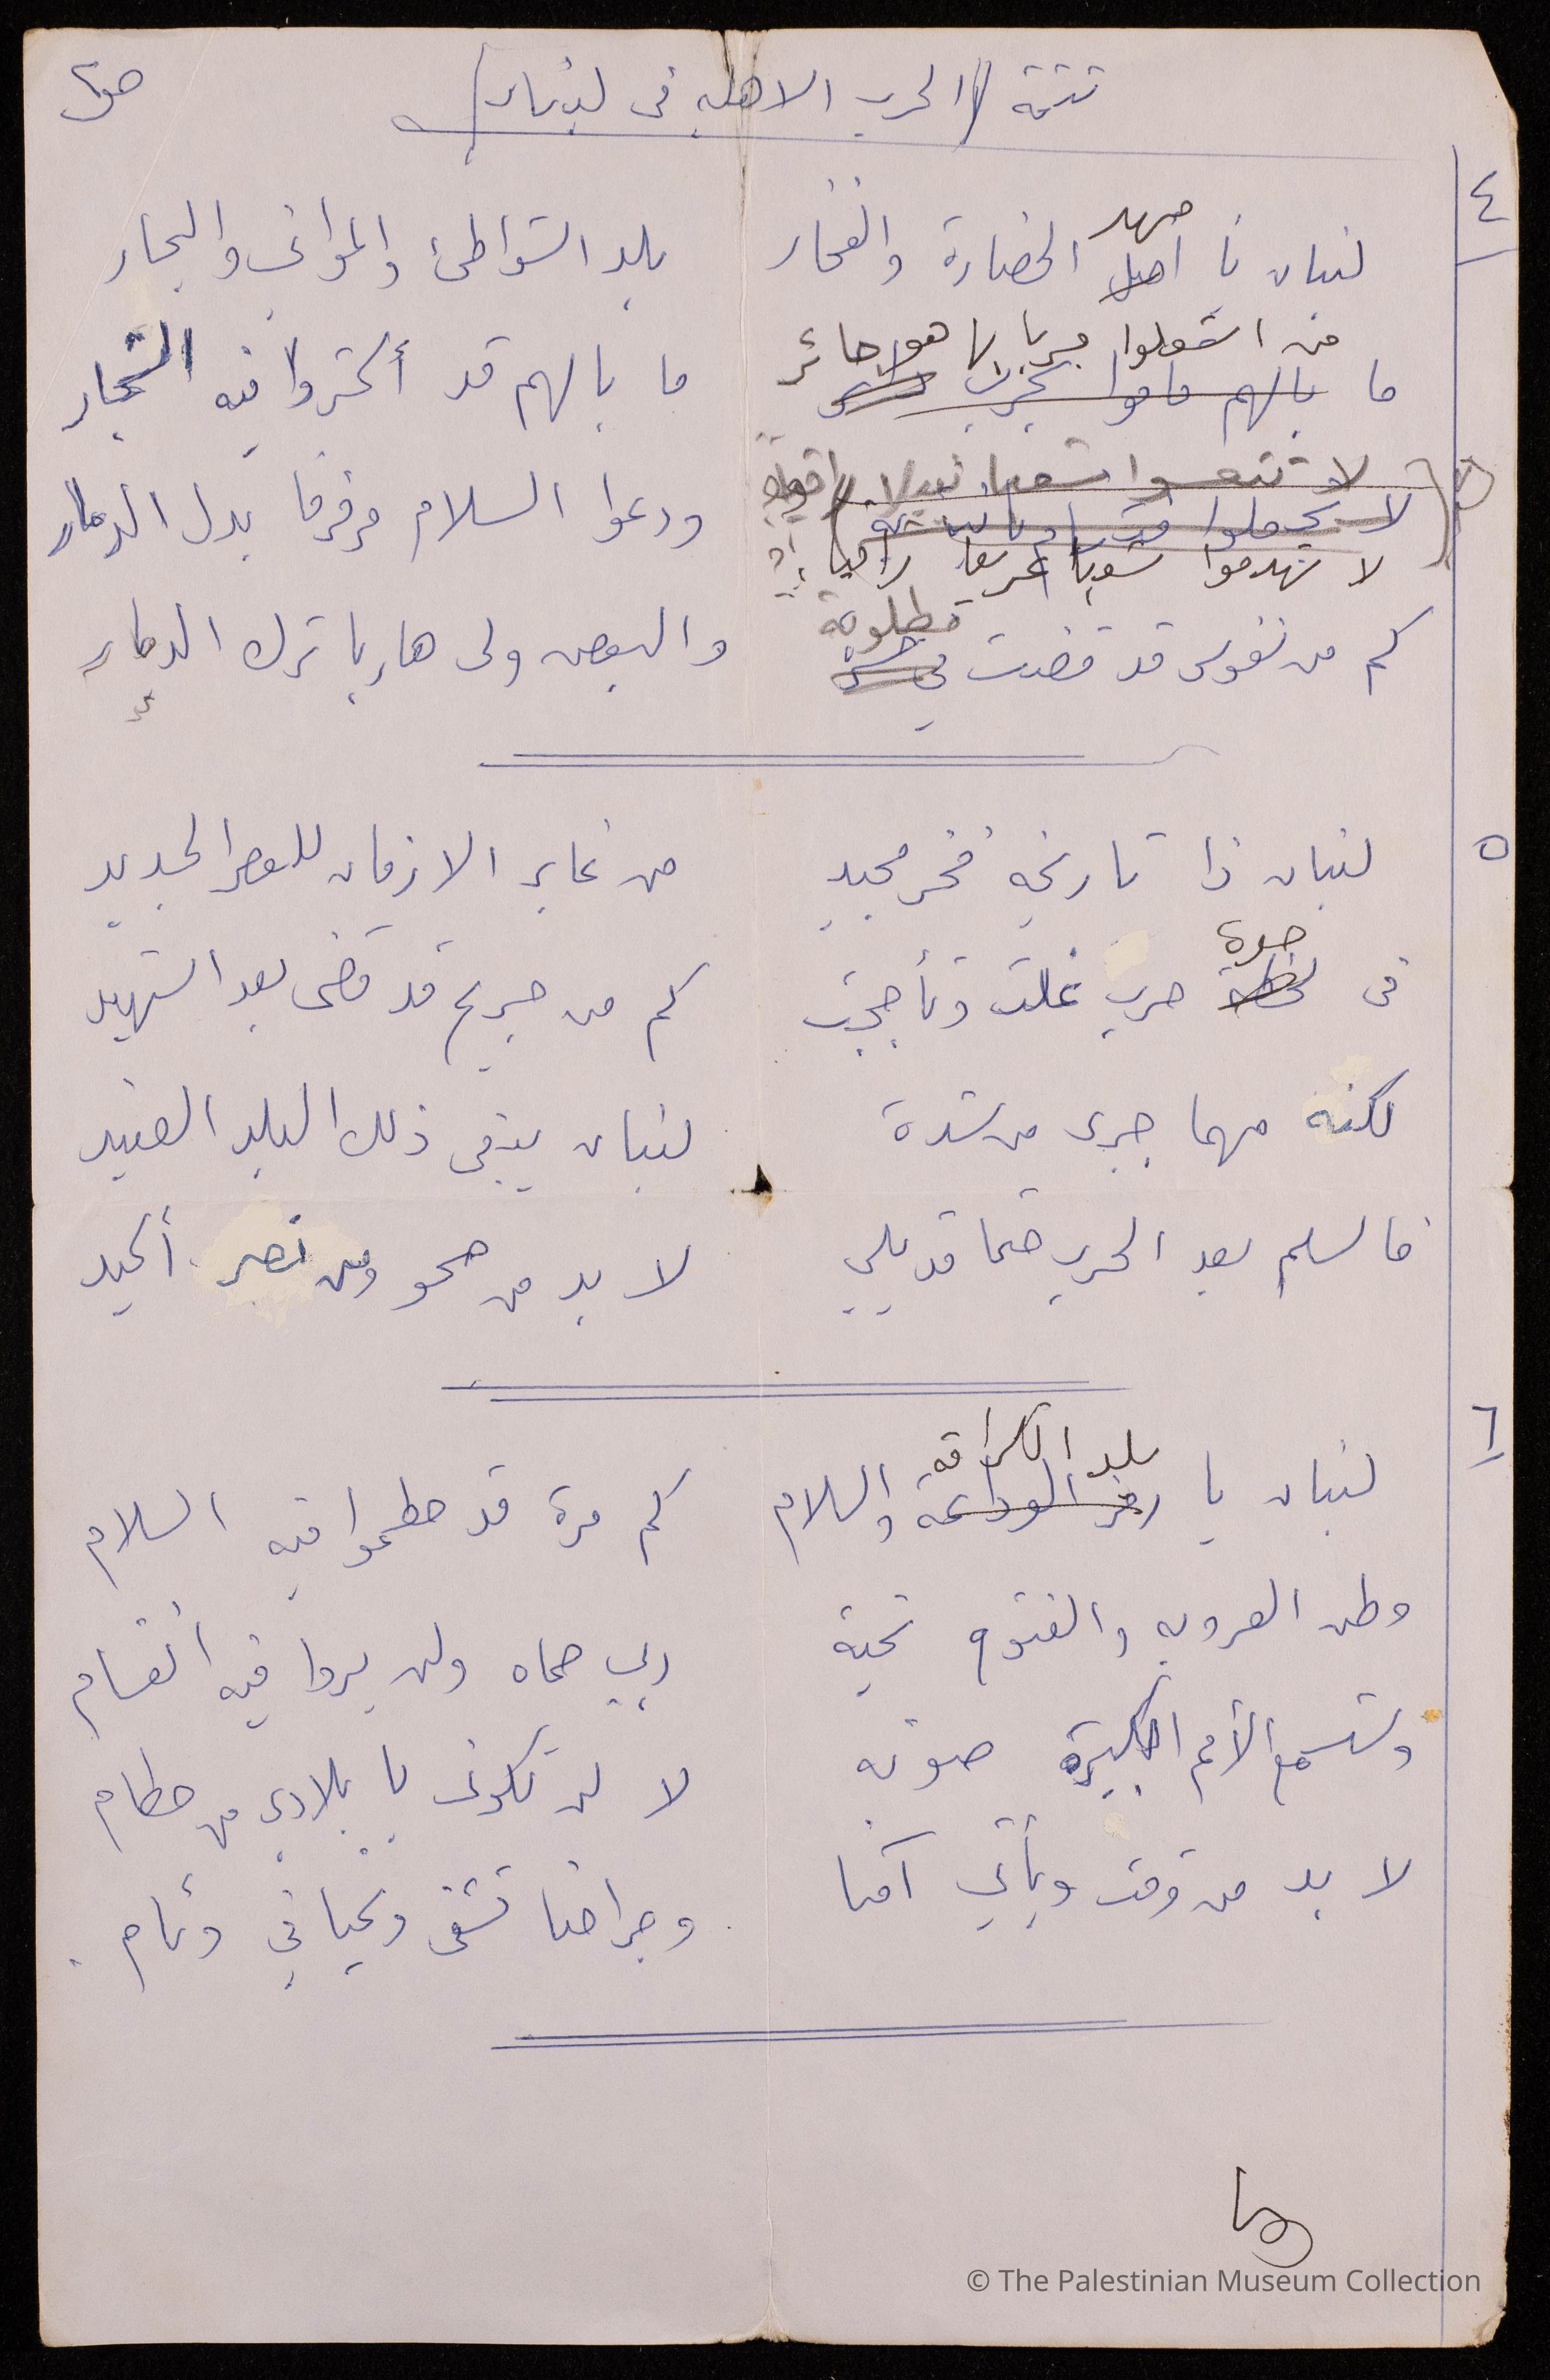 تتمة (الحرب الاهليه في لبنان) ص٢
٤
مهد
لبنان يا اصل الحضارة والفخار بلد الشواطئ والموانئ والبحار
من اشعلوا حربا بها هو جائر
ما بالهم قاموا بحرب ما بالهم قد أكثروا فيه الشجار
لا تتعسوا شعبا نبيلا راقيا
لا تجعلوا
لا تهدموا شعبا عريقا راقيا ودعوا السلام مرفرفا بدل الدمار
مظلومة
كم من نفوس قد قضت في والبعض ولى هاربا ترك الديار
٥
لبنان ذا تاريخه فخر مجيد من غابر الازمان للعصر الجديد
حدة
في لحظة حرب غلت وتأججت كم من جريح قد قضى بعد الشهيد
لكنه مهما جرى من شدة لبنان يبقى ذلك البلد العنيد
فالسلم بعد الحرب حتما قد يلي لا بد من صحو ومن نصر أكيد
٦
بلد الكرامة
لبنان يا رمز الوداعة والسلام كم مرة قد حطموا فيه السلام
وطن العروبه والفتوح تحية ربي حماه ولن يروا فيه انقسام
وستسمع الأمم الكبيرة صوته لا لن تكوني يا بلادي من حطام
لا بد من وقت ويأتي آمنا وجراحنا تشفى ونحيا في وئام.
© The Palestinian Museum Collection